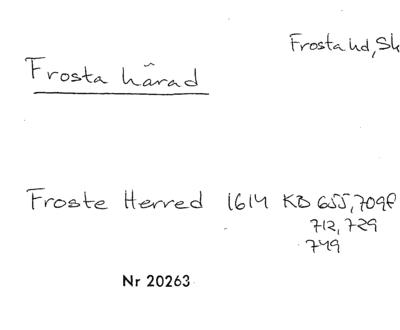 Frosta hd, Sk
Frosta härad
Froste Herred 1614 KB 655, 709f
712, 729
749
Nr 20263